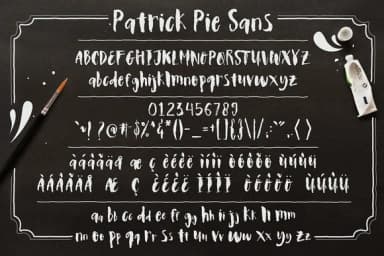 Patrick Pie Sans
ABCDEFGHIJKLMNOPQRSTUVWXYZ
abcdefghijklmnopqrstuvwxyz
0123456789
`~! ?@#$%^&*()-_=+[]{}\|/,.:;"'‹›
àáâãäå æ ç èéêë ìíîï òóôõö ùúûü
ÀÁÂÃÄÅ æ ç ÈÉÊË ÌÍÎÏ ÒÓÔÕÖ ÙÚÛÜ
aa bb cc dd ee ff gg hh ii jj kk ll mm
nn oo pp qq rr ss tt uu vv ww xx yy zz